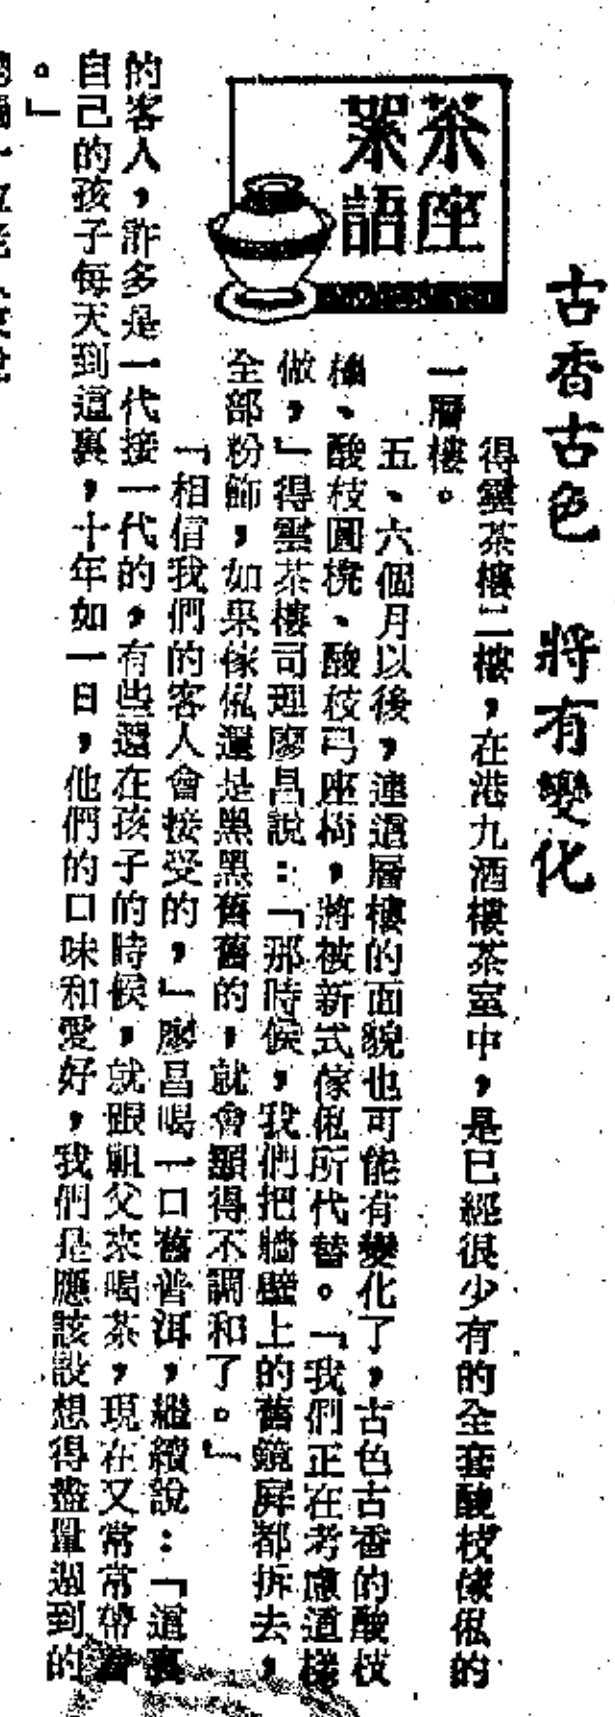 古香古色　將有變化
茶座
絮語
得雲茶樓二樓，在港九酒樓茶室中，是已經很少有的全套酸枝傢俬的
一層樓。
五、六個月以後，連這層樓的面貌也可能有變化了，古色古香的酸枝
枱、酸枝圓櫈、酸枝弓座椅，將被新式傢俬所代替。「我們正在考慮這樣
做，」得雲茶樓司理廖昌說：「那時候，我們把牆壁上的舊鏡屏都拆去，
全部粉飾，如果傢俬還是黑黑舊舊的，就會顯得不調和了。」
「相信我們的客人會接受的，」廖昌喝一口舊普洱，繼續說：「這裏
的客人，許多是一代接一代的，有些還在孩子的時候，就跟祖父來喝茶，現在又常常帶着
自己的孩子每天到這裏，十年如一日，他們的口味和愛好，我們是應該設想得盡量週到的
。」